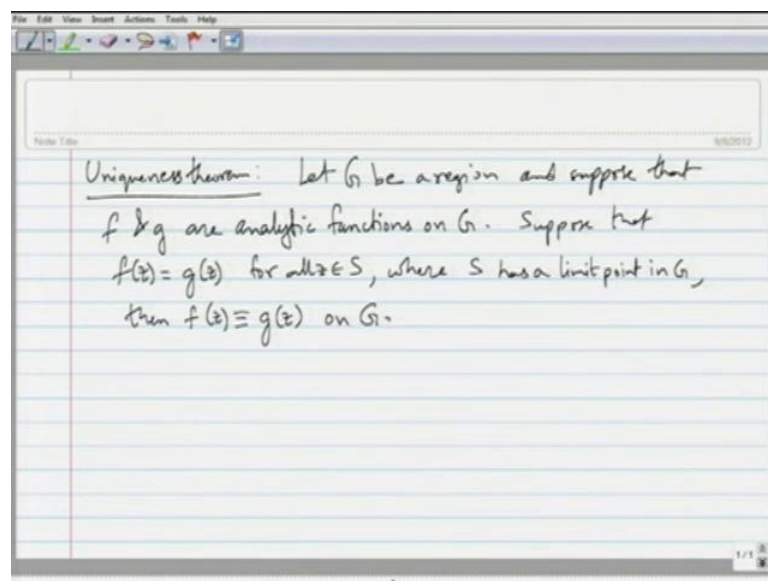 File Edit View Insert Actions Tools Help
Note Title
9/8/2012
Uniqueness theorem: Let G be a region and suppose that
f & g are analytic functions on G. Suppose that
f(z) = g(z) for all z ∈ S, where S has a limit point in G,
then f(z) ≡ g(z) on G.
1/1